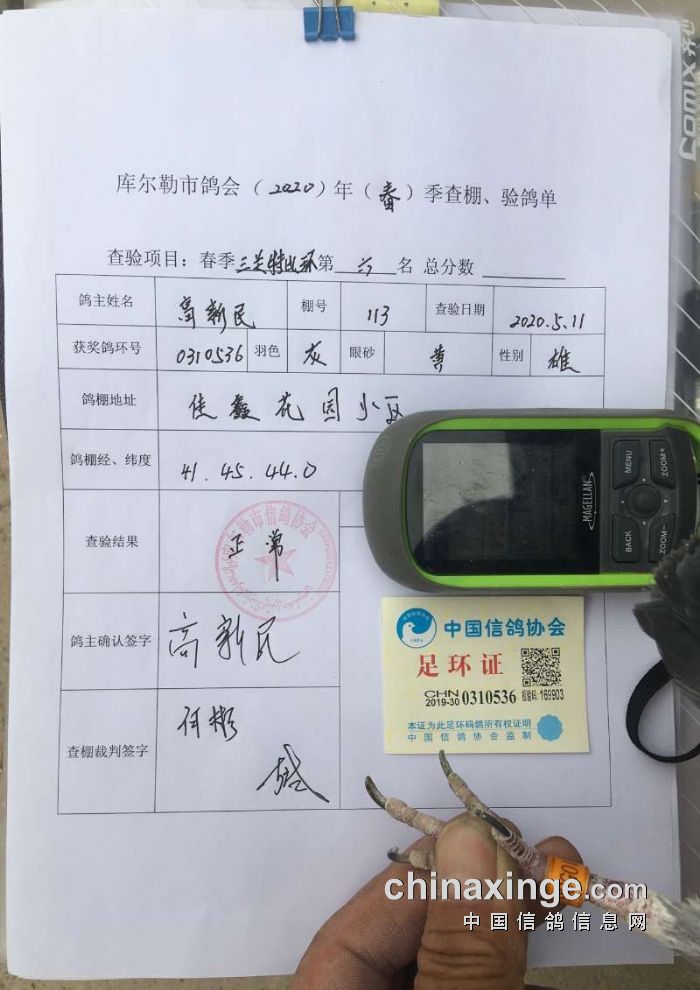 库尔勒市鸽会（2020）年（春）季查棚、验鸽单
查验项目：春季三关特比环第 六 名 总分数
鸽主姓名 高新民 棚号 113 查验日期 2020.5.11
获奖鸽环号 0310536 羽色 灰 眼砂 黄 性别 雄
鸽棚地址 佳鑫花园小区
鸽棚经、纬度 41.45.44.0
查验结果 正常
勒市信鸽协会
鸽主确认签字 高新民
查棚裁判签字 何彬
MAGELLAN
MENU
ZOOM+
BACK
ZOOM-
中国信鸽协会
足环证
CHN
2019-30 0310536 校验码: 169903
本证为此足环码鸽所有权证明
中国信鸽协会监制
chinaxinge.com
中国信鸽信息网